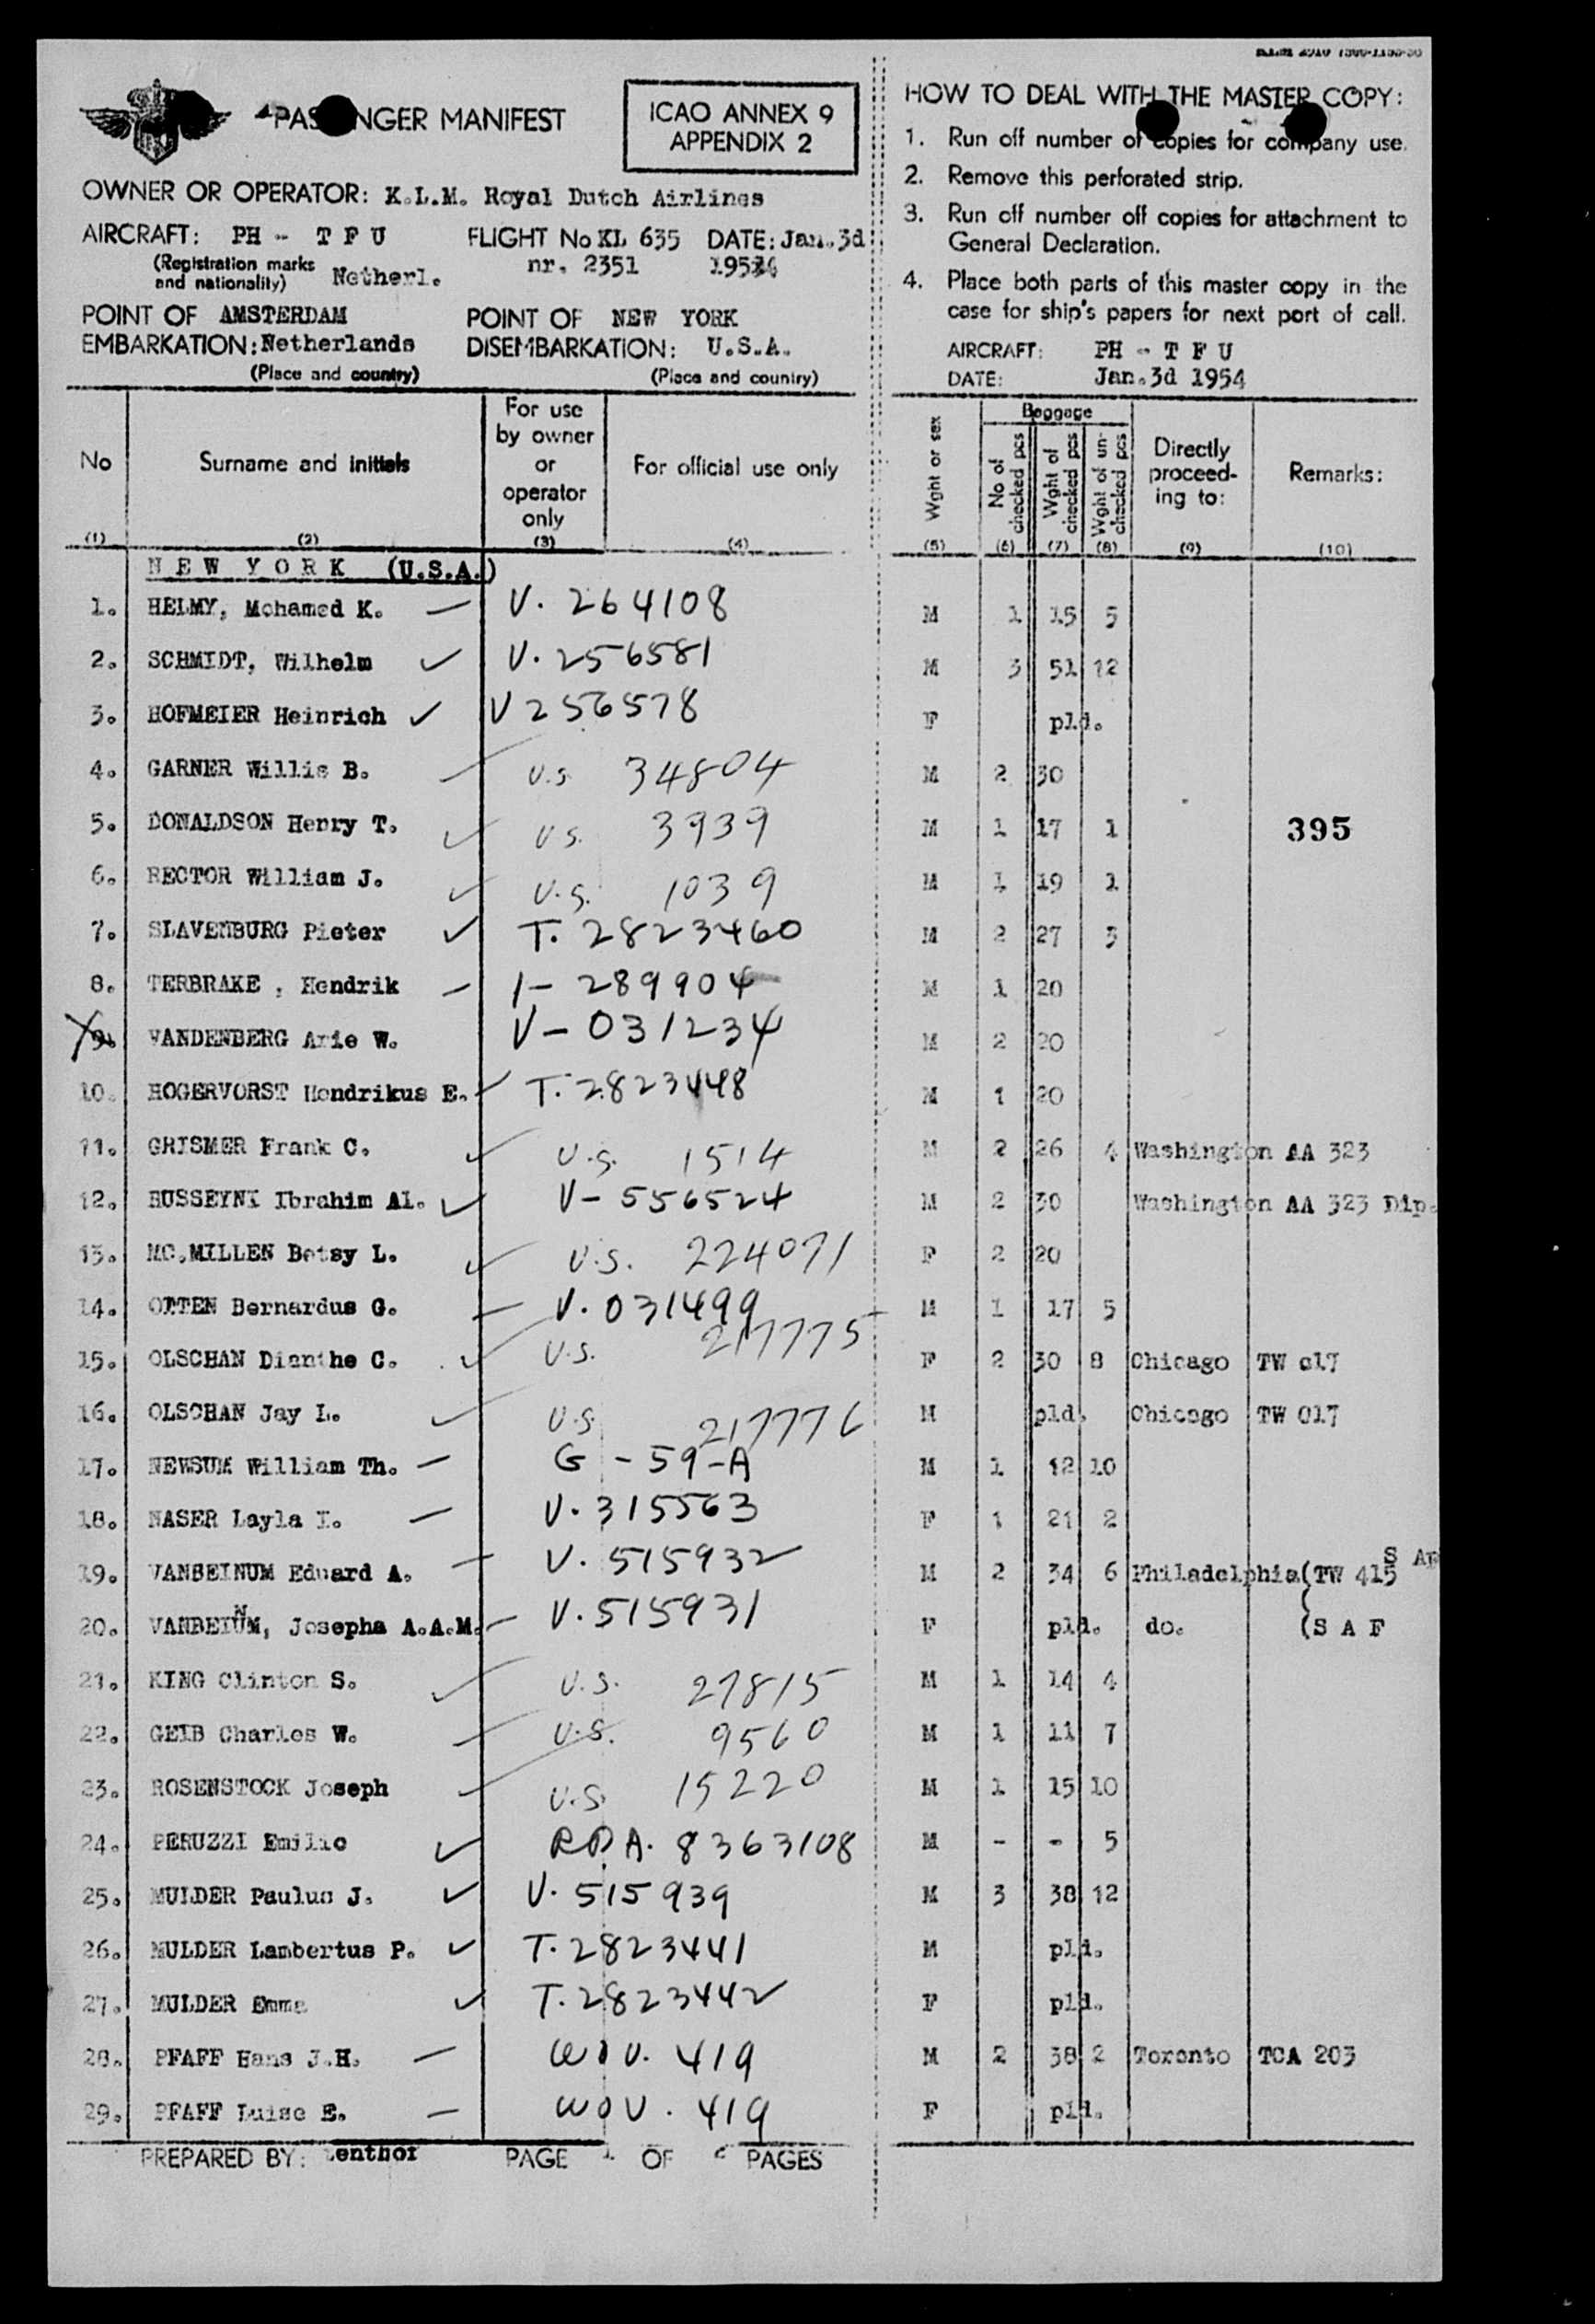 PASSENGER MANIFEST
ICAO ANNEX 9
APPENDIX 2
OWNER OR OPERATOR: K.L.M. Royal Dutch Airlines
AIRCRAFT: PH - T F U
FLIGHT No KL 635 DATE: Jan.3d
(Registration marks and nationality) Netherl.
nr. 2351 1954
POINT OF EMBARKATION: AMSTERDAM Netherlands
(Place and country)
POINT OF DISEMBARKATION: NEW YORK U.S.A.
(Place and country)
HOW TO DEAL WITH THE MASTER COPY:
1. Run off number of copies for company use.
2. Remove this perforated strip.
3. Run off number off copies for attachment to
General Declaration.
4. Place both parts of this master copy in the
case for ship's papers for next port of call.
AIRCRAFT: PH - T F U
DATE: Jan.3d 1954
No (1)
Surname and initials (2)
For use by owner or operator only (3)
For official use only (4)
Wght or sex (5)
Baggage
No of checked pcs (6)
Wght of checked pcs (7)
Wght of un-checked pcs (8)
Directly proceed-ing to: (9)
Remarks: (10)
N E W Y O R K (U.S.A.)
1. HELMY, Mohamed K. — V. 264108 M 1 15 5
2. SCHMIDT, Wilhelm ✓ V. 256581 M 3 51 12
3. HOFMEIER Heinrich ✓ V 256578 F pld.
4. GARNER Willis B. U.S 34804 M 2 30
5. DONALDSON Henry T. ✓ U S. 3939 M 1 17 1
395
6. RECTOR William J. ✓ U.S. 1039 M 1 19 1
7. SLAVENBURG Pieter ✓ T. 2823460 M 2 27 3
8. TERBRAKE , Hendrik — I- 289904 M 1 20
9. VANDENBERG Arie W. V- 031234 M 2 20
10. HOGERVORST Hendrikus E. ✓ T. 2823448 M 1 20
11. GRISMER Frank C. ✓ U.S. 1514 M 2 26 4 Washington AA 323
12. HUSSEYNI Ibrahim Al. ✓ V- 556524 M 2 30 Washington AA 323 Dip.
13. MC.MILLEN Betsy L. ✓ U.S. 224071 F 2 20
14. OTTEN Bernardus G. — V. 031499 M 1 17 5
15. OLSCHAN Dianthe C. ✓ U.S. 217775 F 2 30 8 Chicago TW 017
16. OLSCHAN Jay L. ✓ U.S 217776 M pld. Chicago TW 017
17. NEWSUM William Th. — G - 59-A M 1 12 10
18. NASER Layla I. — V. 315563 F 1 21 2
19. VANBEINUM Eduard A. — V. 515932 M 2 34 6 Philadelphia (TW 415 S Ar
20. VANBEINUM, Josepha A.A.M. — V. 515931 F pld. do. (S A F
21. KING Clinton S. ✓ U.S. 27815 M 1 14 4
22. GEIB Charles W. U.S. 9560 M 1 11 7
23. ROSENSTOCK Joseph U.S. 15220 M 1 15 10
24. PERUZZI Emilio ✓ RPA. 8363108 M - - 5
25. MULDER Paulus J. ✓ V. 515939 M 3 38 12
26. MULDER Lambertus P. ✓ T. 2823441 M pld.
27. MULDER Emma ✓ T. 2823442 F pld.
28. PFAFF Hans J.H. — WOV. 419 M 2 38 2 Toronto TCA 203
29. PFAFF Luise E. — WOV. 419 F pld.
PREPARED BY: PAGE 1 OF PAGES